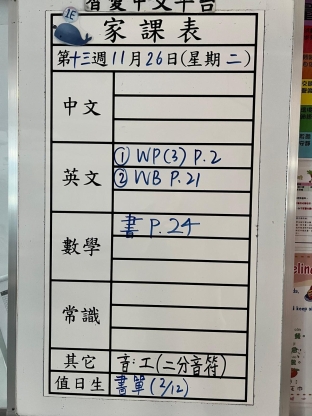 智愛中文平台
1E
家課表
第十三週11月26日(星期二)
中文
英文
① WP(3) P.2
② WB P.21
數學
書 P.24
常識
其它
音:工(二分音符)
值日生
書單(2/12)